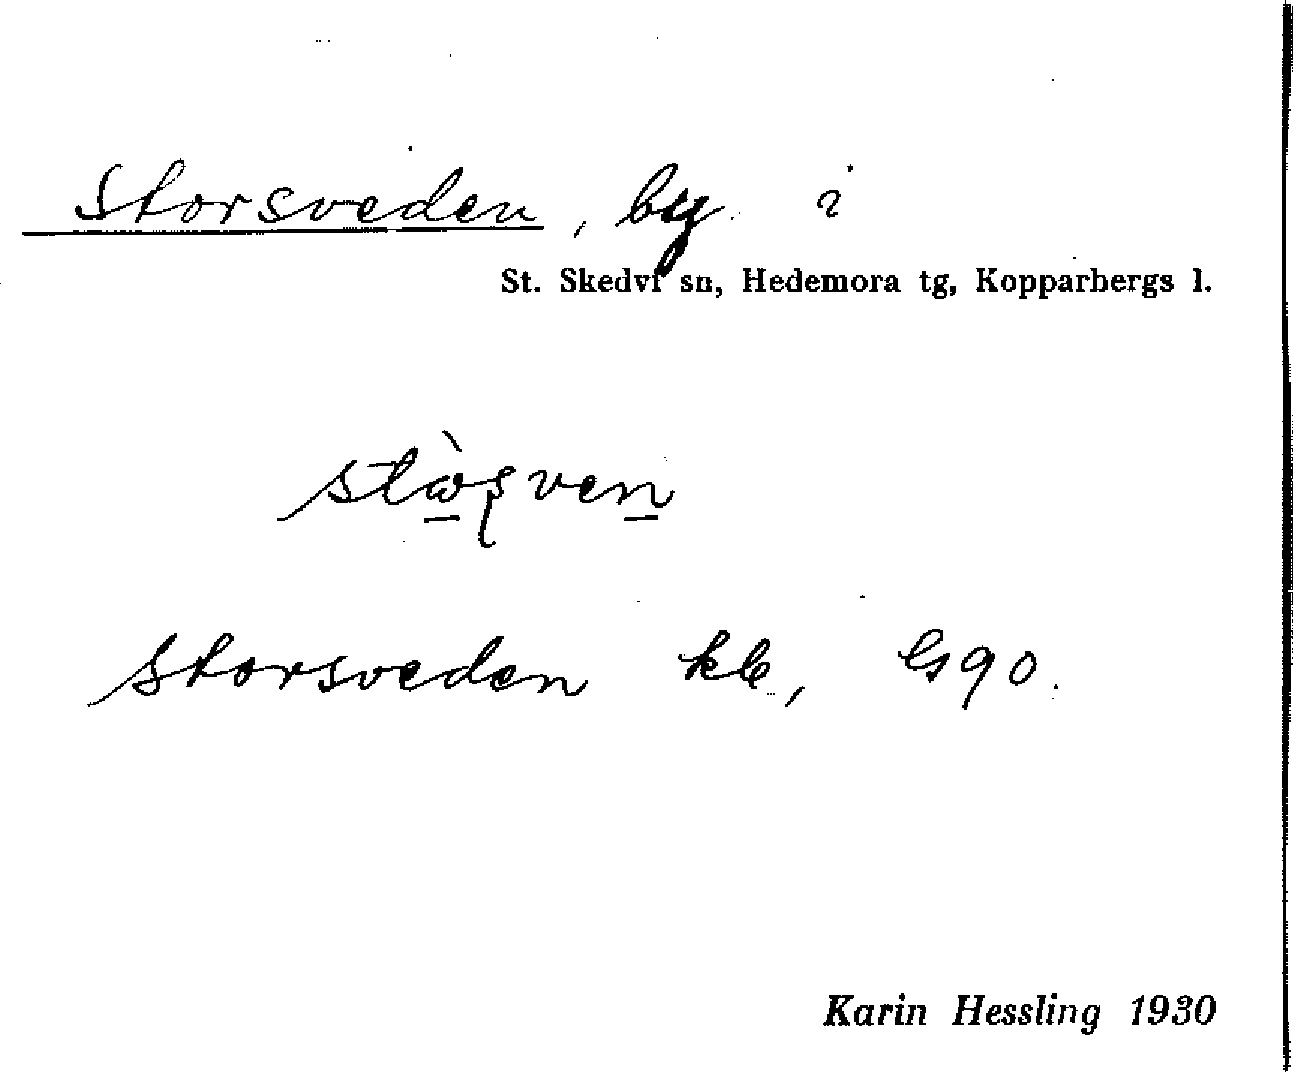 Storsveden, by i
St. Skedvi sn, Hedemora tg, Kopparbergs l.
Storsveden kb, G90.
Karin Hessling 1930